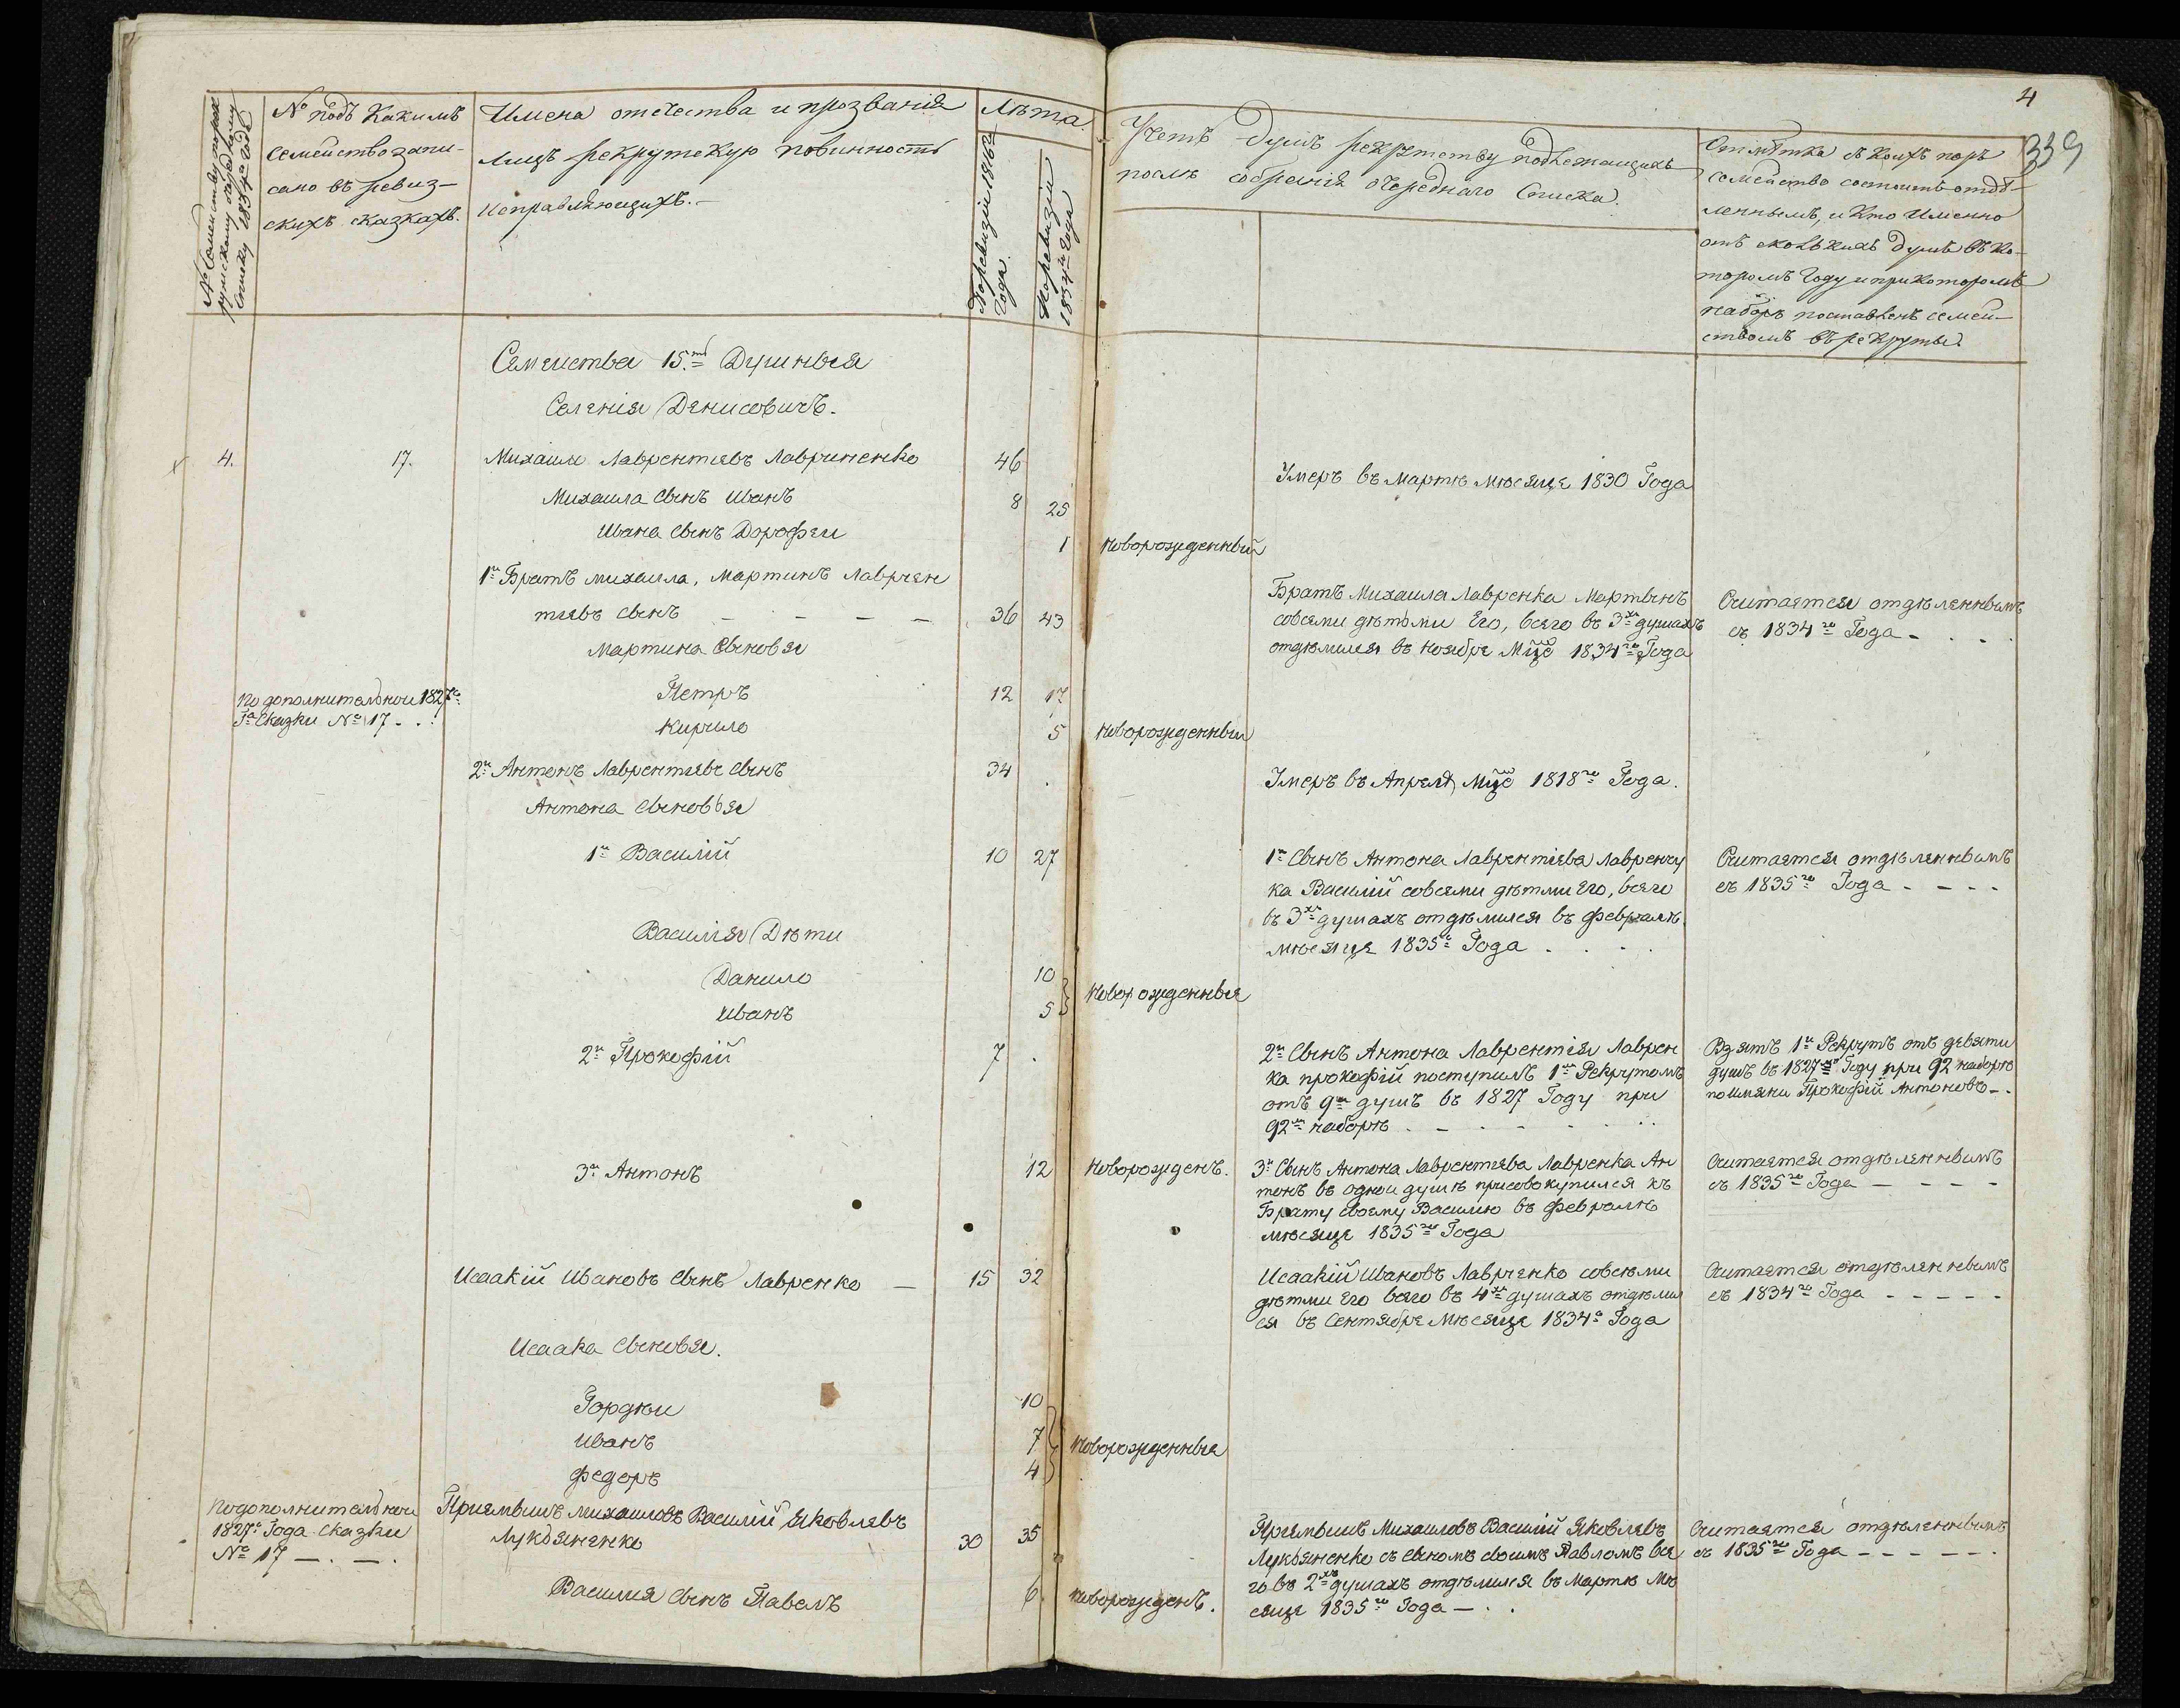 № Семейству по рек
рутскому очередному
списку 183 го года
№ подъ Какимъ
семейство запи-
сано въ ревиз-
скихъ сказкахъ.
Имена отечества и прозванія
лицъ рекрутскую повинность
исправляющихъ.-
Лѣта
По ревизіи 1816го
Года.
По ревизіи
1834го года
Учетъ Душъ рекрутству подлежащихъ
послѣ собранія очереднаго Списка.
4
339
Отмѣтка съ коихъ поръ
семейство состоитъ отдѣ-
леннымъ, и Кто Именно
отъ сколькихъ душъ въ Ко-
торомъ Году и при Которомъ
наборѣ поставленъ семей-
ствомъ въ рекруты
Семейства 15.ти Душныя
Селенія Денисовичъ.
4. 17. Михаилъ Лаврентьевъ Лавриненко 46 Умеръ въ мартѣ мѣсяцѣ 1830 Года
Михаила сынъ Иванъ 8 25
Ивана сынъ Дорофеи 1 новорожденный
1й Братъ михаила, Мартинъ Лаврен
тьевъ сынъ - - - - 36 43
Братъ Михаила Лавренка Мартынъ
совсеми дѣтьми Его, всего въ 3хъ душахъ
отдѣлился въ ноябре Мцѣ 1834го Года
Считается отдѣленнымъ
съ 1834го Года - . . .
Мартина Сыновья
По дополнительнои 1827го
Га Сказки № 17 - . .
Петръ 12 17
Кирило 5 новорожденныи
2й Антонъ Лаврентьевъ Сынъ 34 Умеръ въ Апреле Мцѣ 1818го Года.
Антона сыновья
1й Василій 10 27
1й Сынъ Антона Лаврентіева Лаврену
ка Василій совсеми дѣтми Его, всего
въ 3хъ душахъ отдѣлился въ февралѣ
мѣсяце 1835го Года . . . .
Считается отдѣленнымъ
съ 1835го Года - - - -
Василія Дѣти
Данило 10
Иванъ 5 новорожденныя
2й Прокофій 7
2й Сынъ Антона Лаврентія Лаврен
ка прокофій поступилъ 1мъ Рекрутомъ
отъ 9ти душъ въ 1827 Году при
92мъ наборѣ . - . - . - . .
Взятъ 1й Рекрутъ отъ девяти
душъ въ 1827мъ Году при 92 наборѣ
по имяни Прокофій Антоновъ -.
3й Антонъ 12 новорожденъ.
3й Сынъ Антона Лаврентьева Лавренка Ан
тонъ въ однои душѣ присовокупился къ
Брату своему Василию въ февралѣ
мѣсяце 1835го Года
Считается отдѣленнымъ
съ 1835го Года - - - -
Исаакій Ивановъ Сынъ Лавренко - 15 32
Исаакій Ивановъ Лавренко совсѣми
дѣтми Его всего въ 4хъ душахъ отдѣлил
ся въ Сентябре Мѣсяце 1834го Года
Считается отдѣленнымъ
съ 1834го Года - - - - -
Исаака Сыновья.
Гордѣи 10
Иванъ 7 новорожденныя
федоръ 4
По дополнительнои
1827го Года Сказки
№ 17 - . - .
Приемышъ михаиловъ Василій Яковлевъ
Лукьяненко 30 35
Приемышъ Михаиловъ Василій Яковлевъ
Лукьяненко съ сыномъ своимъ Павломъ все
го въ 2хъ душахъ отдѣлился въ Мартѣ Мѣ
сяце 1835го Года - . .
Считается отдѣленнымъ
съ 1835го Года - - - - - -
Василия Сынъ Павелъ 6 новорожденъ.